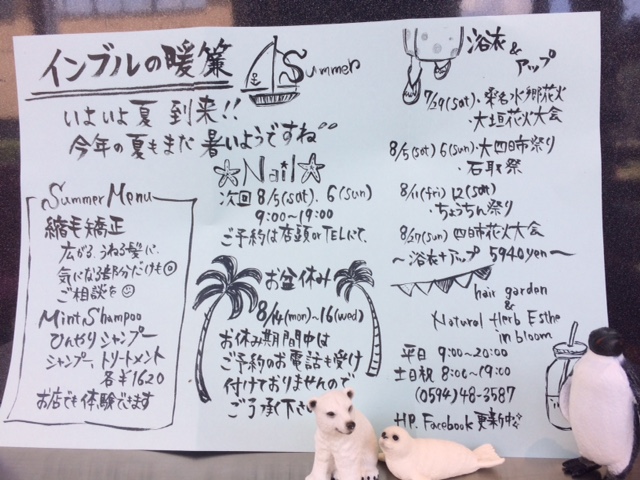 インブルの暖簾
Summer
いよいよ夏 到来!!
今年の夏もまだ暑いようですね
☆Nail☆
次回 8/5(sat). 6(sun)
9:00~19:00
ご予約は店頭or TELにて.
Summer Menu
縮毛矯正
広がる、うねる髪に.
気になる部分だけも◎
ご相談を
Mint Shampoo
ひんやりシャンプー
シャンプー、トリートメント
各¥1620
お店でも体験できます
お盆休み
8/14(mon)~16(wed)
お休み期間中は
ご予約のお電話も受け
付けておりませんので
ご了承下さ
浴衣&
アップ
7/29(sat)・桑名水郷花火
・大垣花火大会
8/5(sat) 6(sun)・大四日市祭り
・石取祭
8/11(fri) 12(sat)
・ちょうちん祭り
8/27(sun) 四日市花火大会
~浴衣+アップ 5940yen~
hair garden
&
Natural Herb Esthe
in bloom
平日 9:00~20:00
土日祝 8:00~19:00
(0594)48-3587
HP. Facebook 更新中